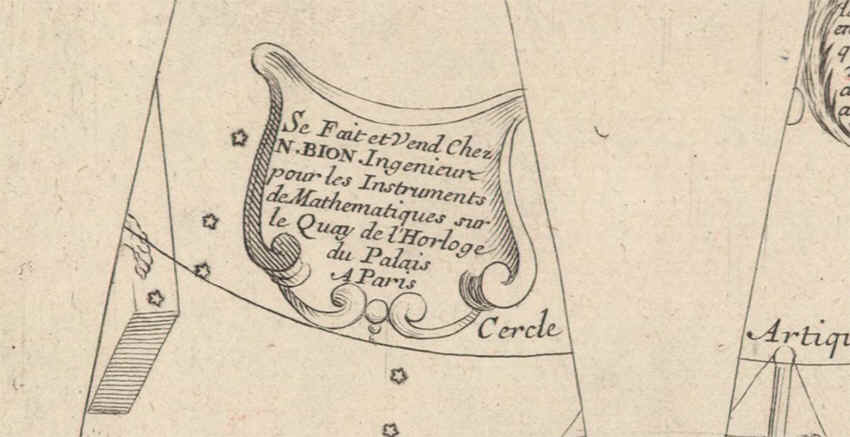 Se Fait et Vend Chez
N. BION. Ingenieur
pour les Instruments
de Mathematiques sur
le Quay de l'Horloge
du Palais
A Paris
Cercle
Artiqu